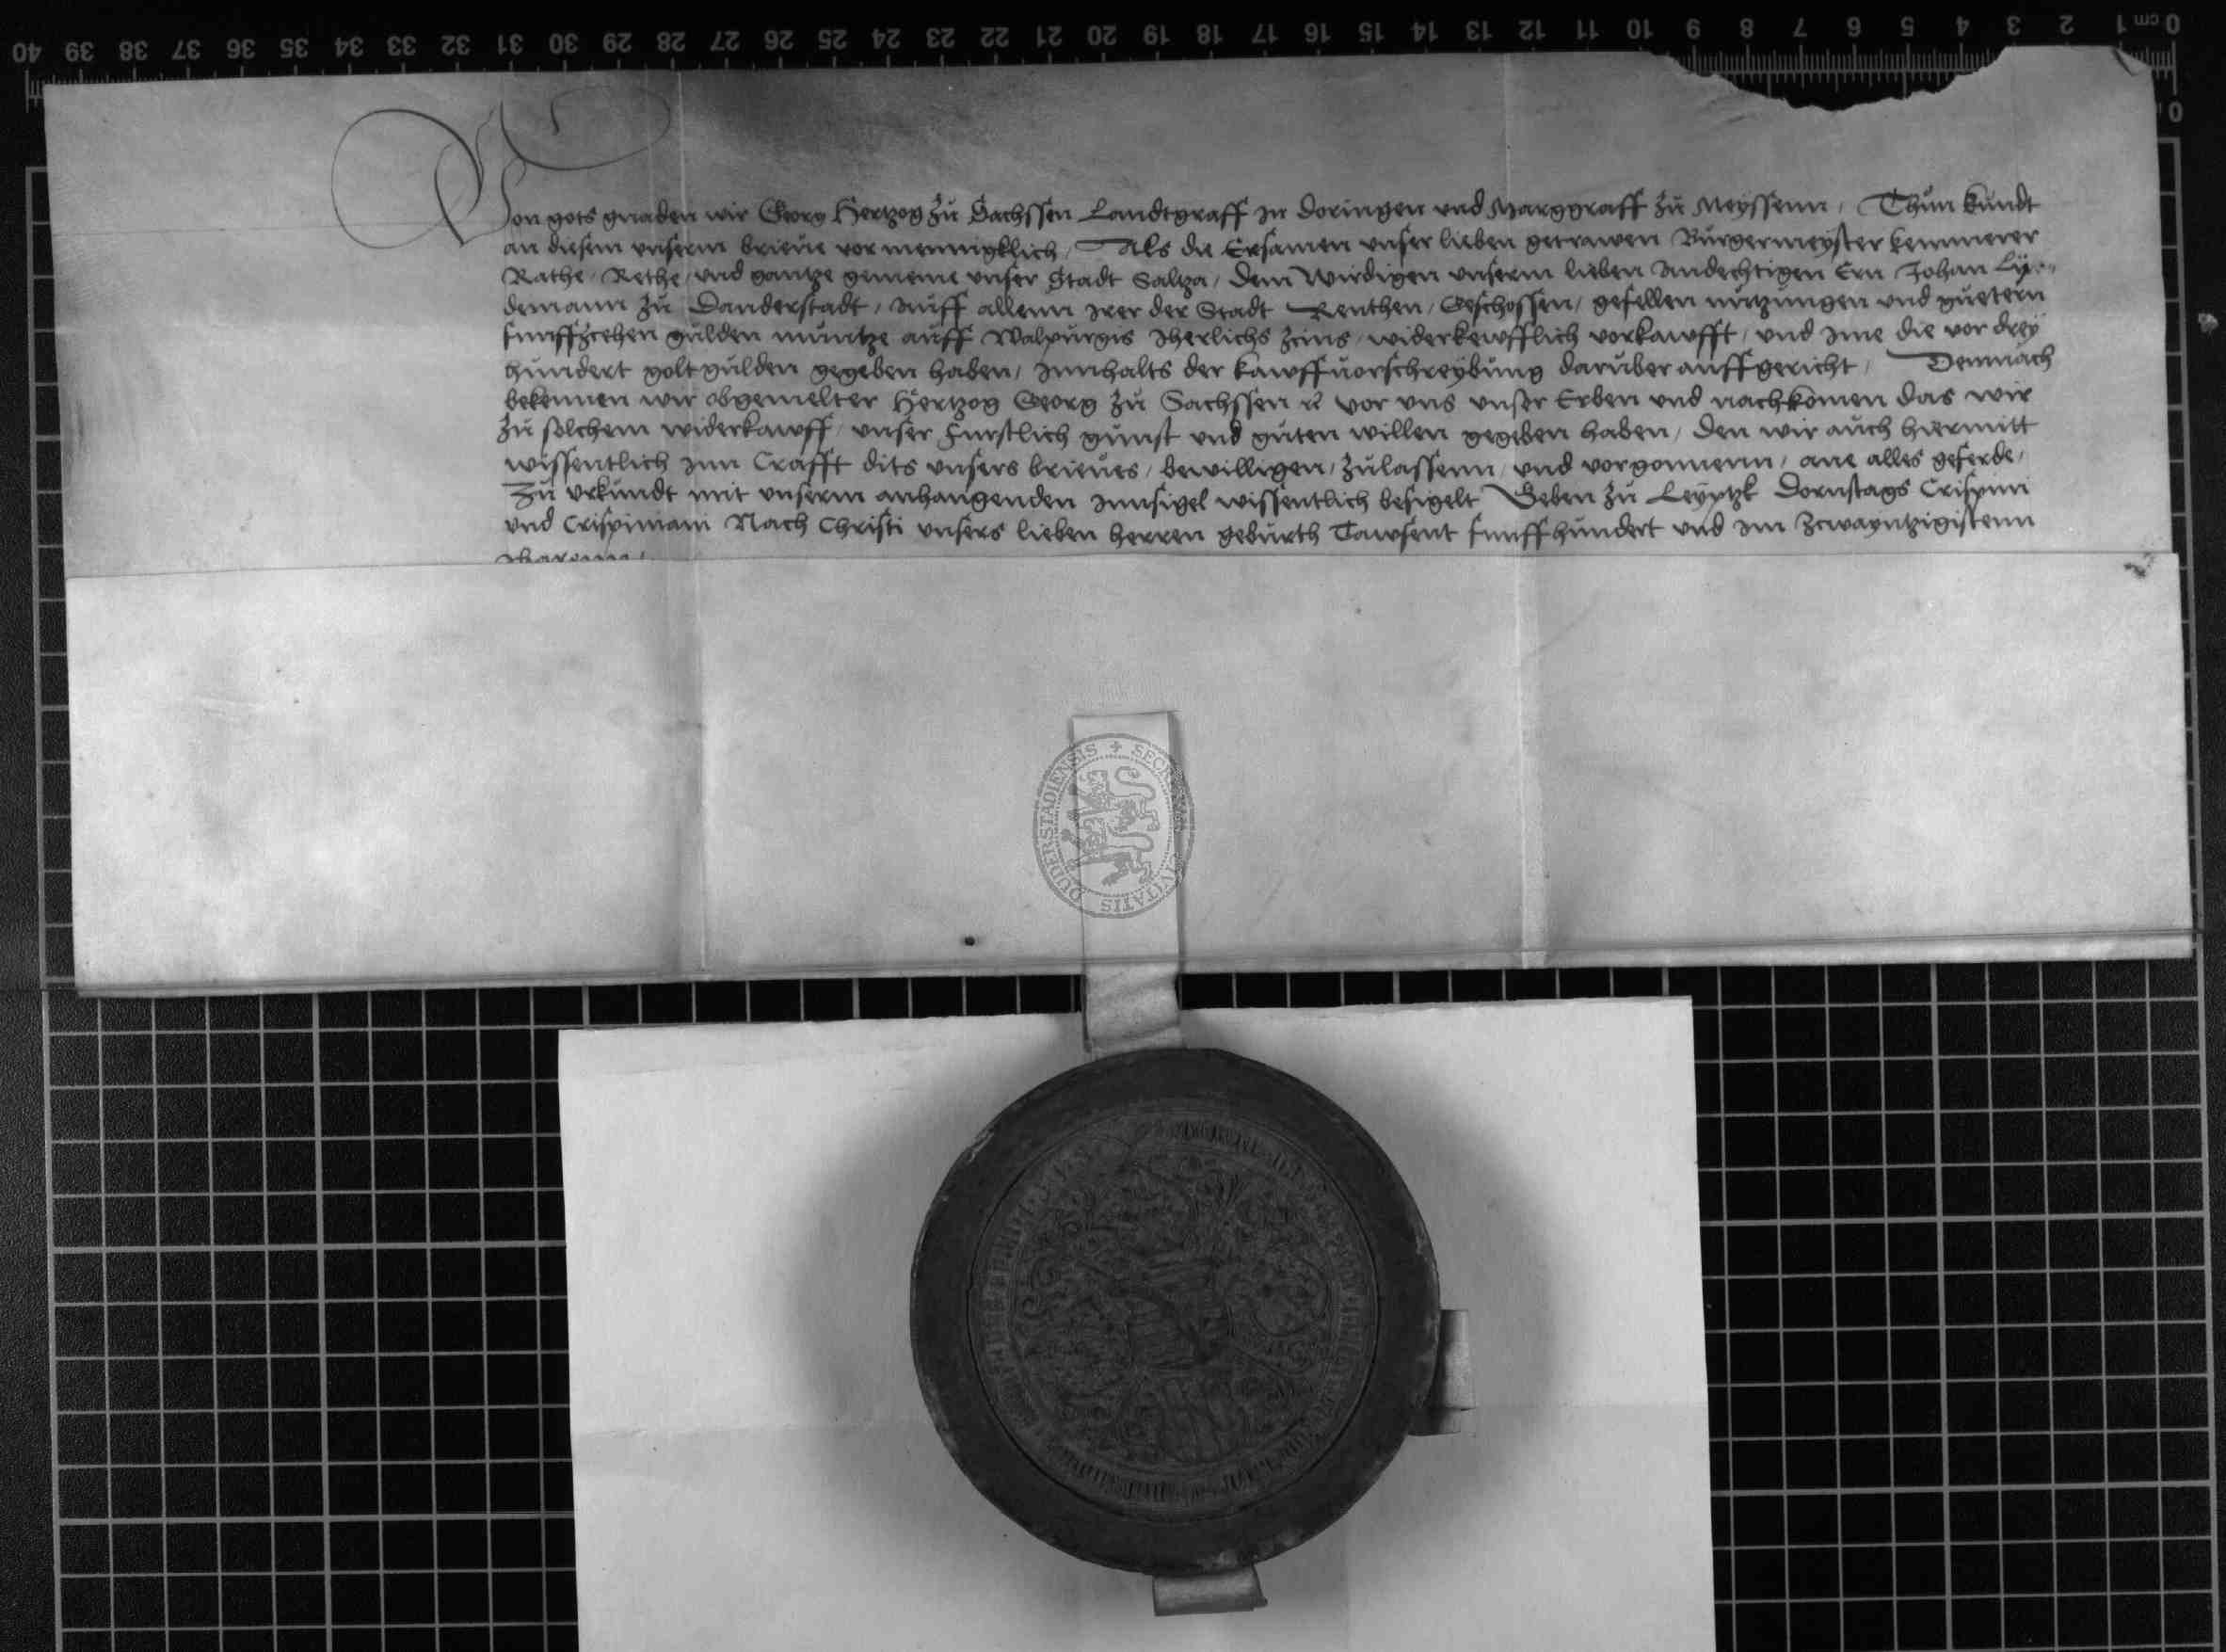 Von gots gnaden wir Georg Hertzog zu Sachssen Landtgraff in Doringen und Marggraff zu Meyssenn, Thun kundt
an diesem unserm brieue vor mennigklich, Als die Ersamen unser lieben getrawen Burgermeyster kemmerer
Rathe, Rethe, und gantze gemeine unser Stadt Saltza, dem Wirdigen unserm lieben andechtigen Ern Johan
demann zu Duderstadt, auff allenn irer der Stadt Renthen, Geschossen, gefellen nutzungen und guetern
funffzcehen gulden muntze auff Walpurgis Jherlichs zcins, widerkewfflich vorkawfft, und ime die vor drey
hundert golt gulden gegeben haben, innhalts der kawffuorschreybung daruber auffgericht, Demnach
bekennen wir obgemelter Hertzog Georg zu Sachssen vor uns unser Erben und nachkomen das wir
zu solchem widerkawff, unser Furstlich gunst und guten willen gegeben haben, den wir auch hiermitt
wissentlich inn Crafft dits unsers brieues, bewilligen, zulassenn, und vorgonnenn, ane alles geferde,
Zu urkundt mit unserm anhangenden innsigel wissentlich besigelt Geben zu Leyptzk Dornstags Crispini
und Crispiniani Nach Christi unsers lieben herren geburth Tawsent funffhundert und im zcwayntzigistenn
40 39 38 37 36 35 34 33 32 31 30 29 28 27 26 25 24 23 22 21 20 19 18 17 16 15 14 13 12 11 10 9 8 7 6 5 4 3 2 1 cm 0
0
CIVITATIS DUDERSTADIENSIS +